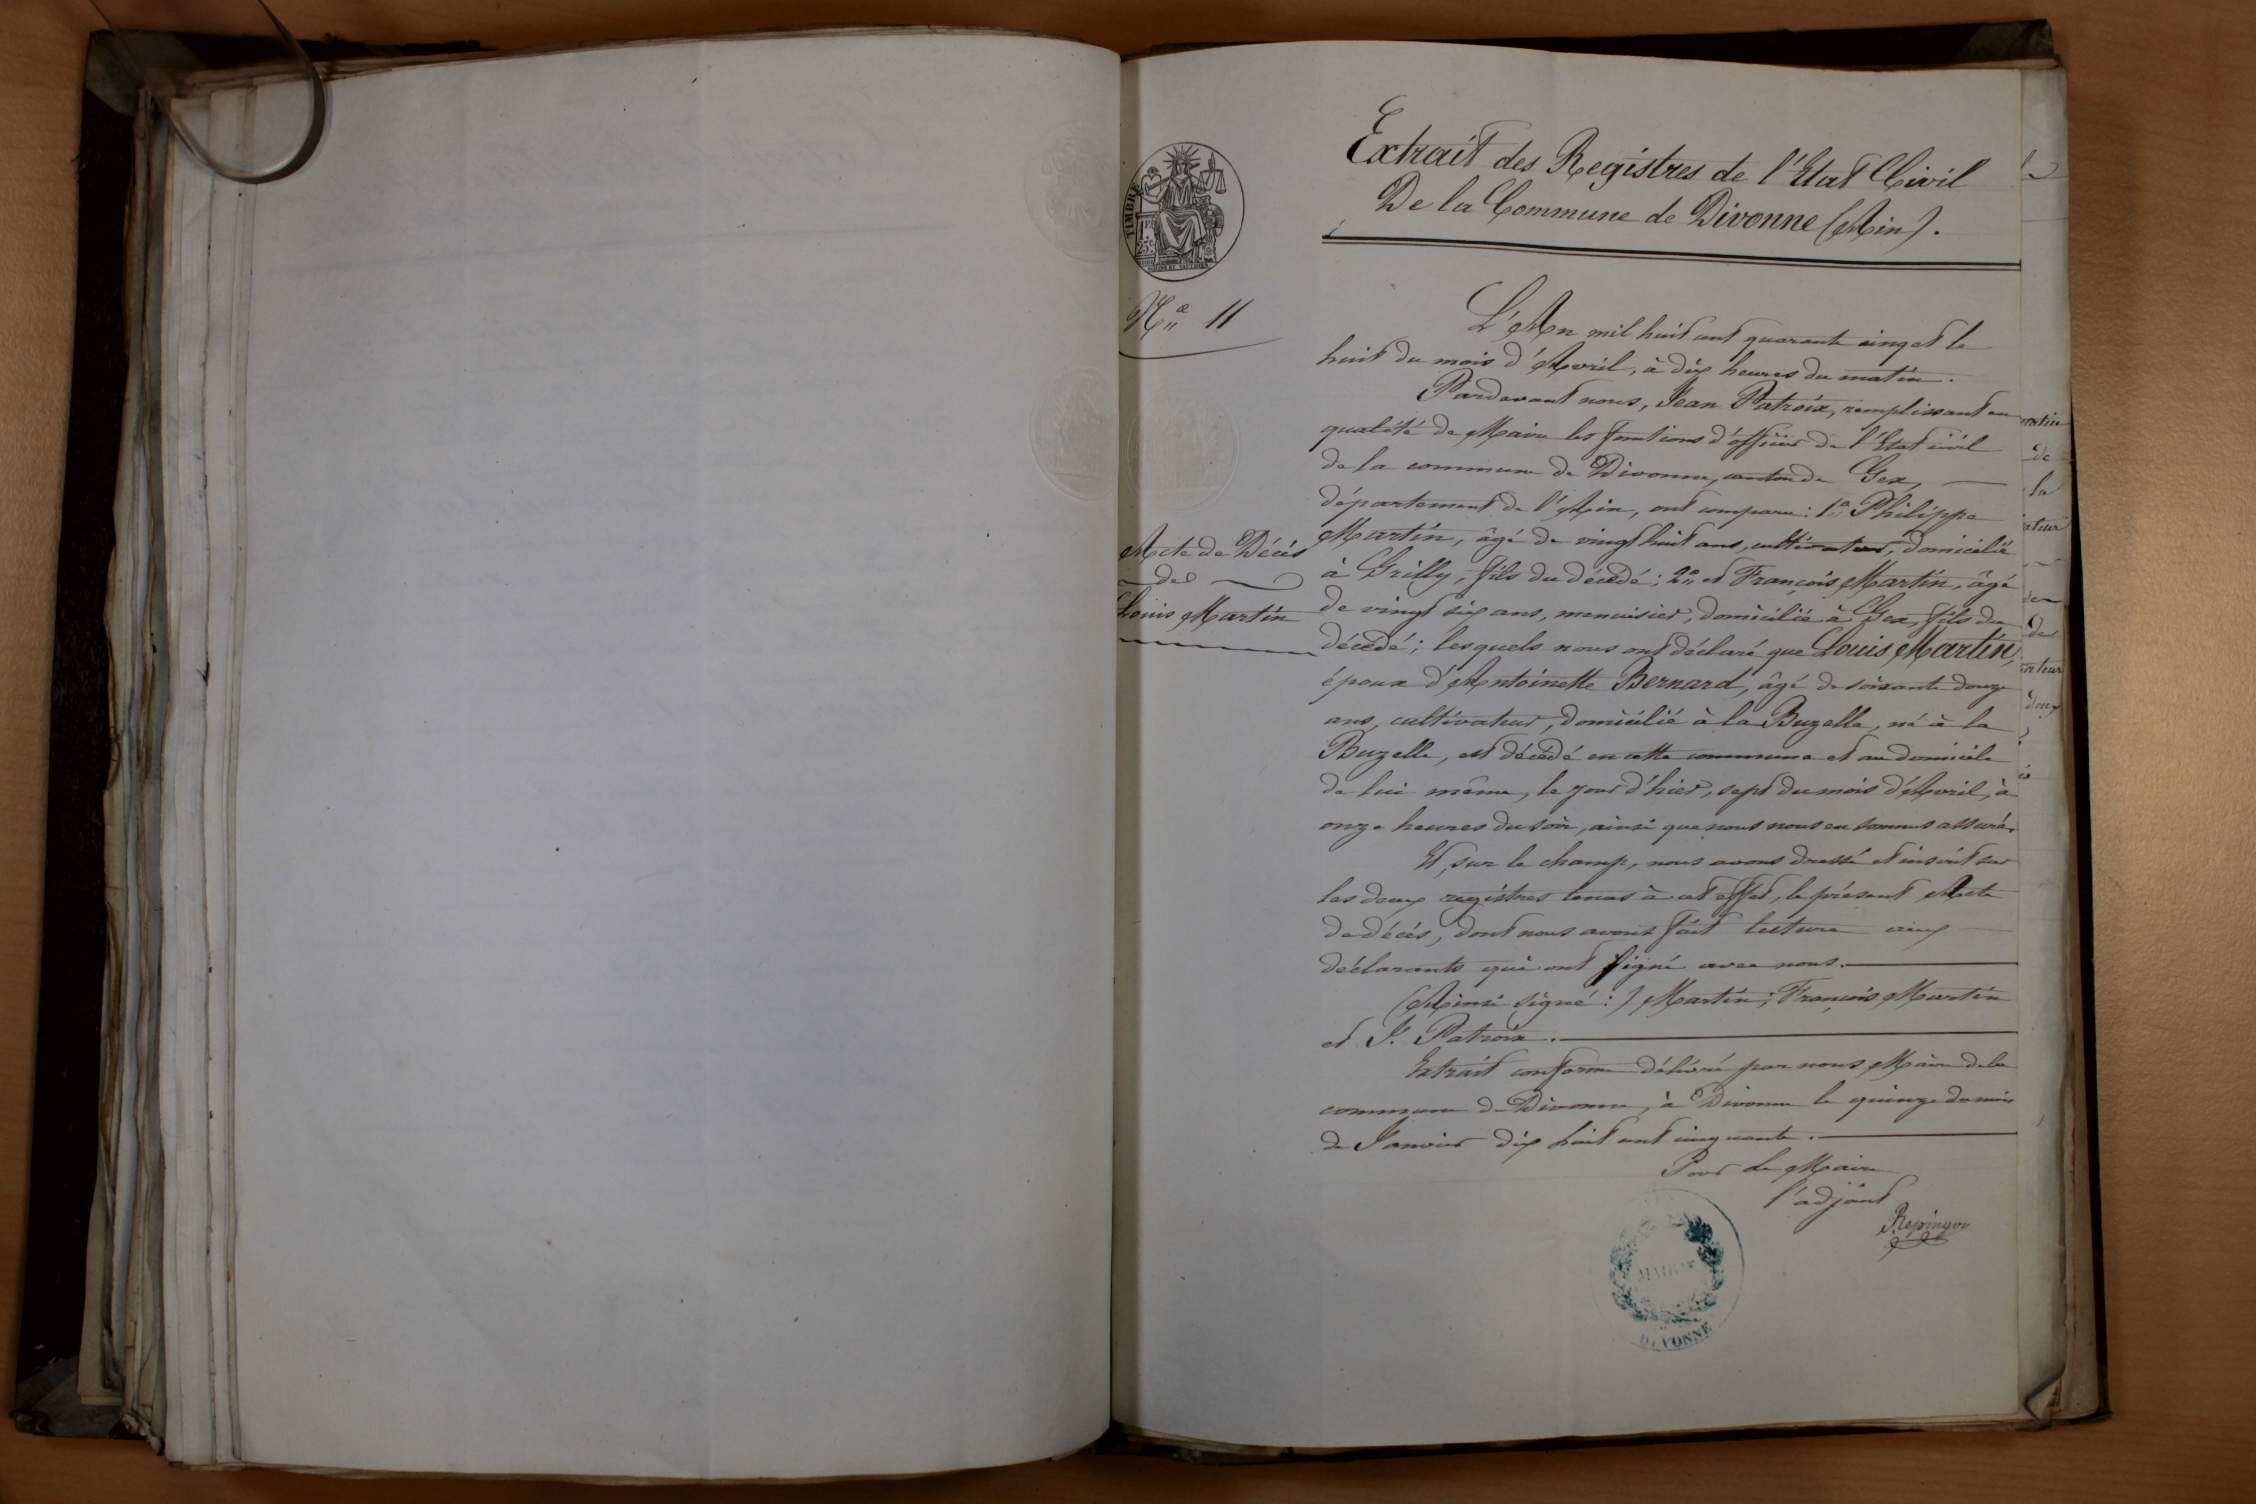 Extrait des Registres de l'Etat Civil
De la Commune de Divonne (Ain).
TIMBRE
1 F.
25 c.
N.º 11
L'An mil huit cent quarante cinq et le
huit du mois d'Avril, à dix heures du matin.
Pardevant nous, Jean Patroix, remplissant en
qualité de Maire les fonctions d'officier de l'Etat civil
de la commune de Divonne, canton de Gex,
département de l'Ain, ont comparu: 1.º Philippe
Martin, âgé de vingt huit ans, cultivateur, domicilié
à Grilly, fils du décédé; 2.º et François Martin, âgé
de vingt six ans, menuisier, domicilié à Gex, fils du
décédé; lesquels nous ont déclaré que Louis Martin,
époux d'Antoinette Bernard, âgé de soixante douze
ans, cultivateur, domicilié à la Buzelle, né à la
Buzelle, est décédé en cette commune et au domicile
de lui même, le jour d'hier, sept du mois d'Avril, à
onze heures du soir, ainsi que nous nous en sommes assuré.
Et, sur le champ, nous avons dressé et inscrit sur
les deux registres tenus à cet effet, le présent Acte
de décès, dont nous avons fait lecture aux
déclarants qui ont signé avec nous.
(Ainsi signé:) Martin; François Martin
et J. Patroix.
Extrait conforme délivré par nous Maire de la
commune de Divonne, à Divonne le quinze du mois
de Janvier dix huit cent cinquante.
Pour le Maire
l'adjoint
Repingon
Acte de Décès
de
Louis Martin
MAIRIE
DIVONNE